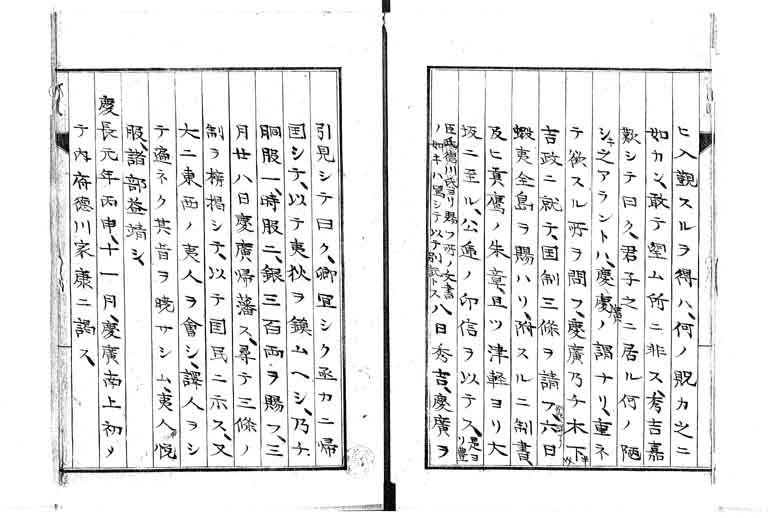 ヒ入覲スルヲ得ハ、何ノ貺カ之ニ
如カン、敢テ望ム所ニ非ス、秀吉嘉
歎シテ曰ク、君子之ニ居ル何ノ陋
シキ之アラントハ、慶廣ノ謂ナリ、重ネ
テ欲スル所ヲ問フ、慶廣乃チ木下半以
吉政ニ就テ、国制三條ヲ請フ、六日
蝦夷全島ヲ賜ハリ、附スルニ制書、
及ヒ真鷹ノ朱章、且ツ津軽ヨリ大
坂ニ至ル、公逓ノ印信ヲ以テス、是ヨリ豊
臣氏徳川氏ヨリ賜フ所ノ文書ノ如キハ寫シテ以テ別記トス八日秀吉、慶廣ヲ
引見シテ曰ク、卿宜シク亟カニ帰
国シテ、以テ夷狄ヲ鎮ムヘシ、乃チ
胴服一、時服二、銀三百両ヲ賜フ、三
月廿八日慶廣帰藩ス、尋テ三條ノ
制ヲ榜掲シテ、以テ国民ニ示ス、又
大ニ東西ノ夷人ヲ會シ、譯人ヲシ
テ遍ネク其旨ヲ暁サシム、夷人悦
服、諸部益靖シ、
慶長元年丙申、十一月、慶廣南上初メ
テ内府徳川家康ニ謁ス、